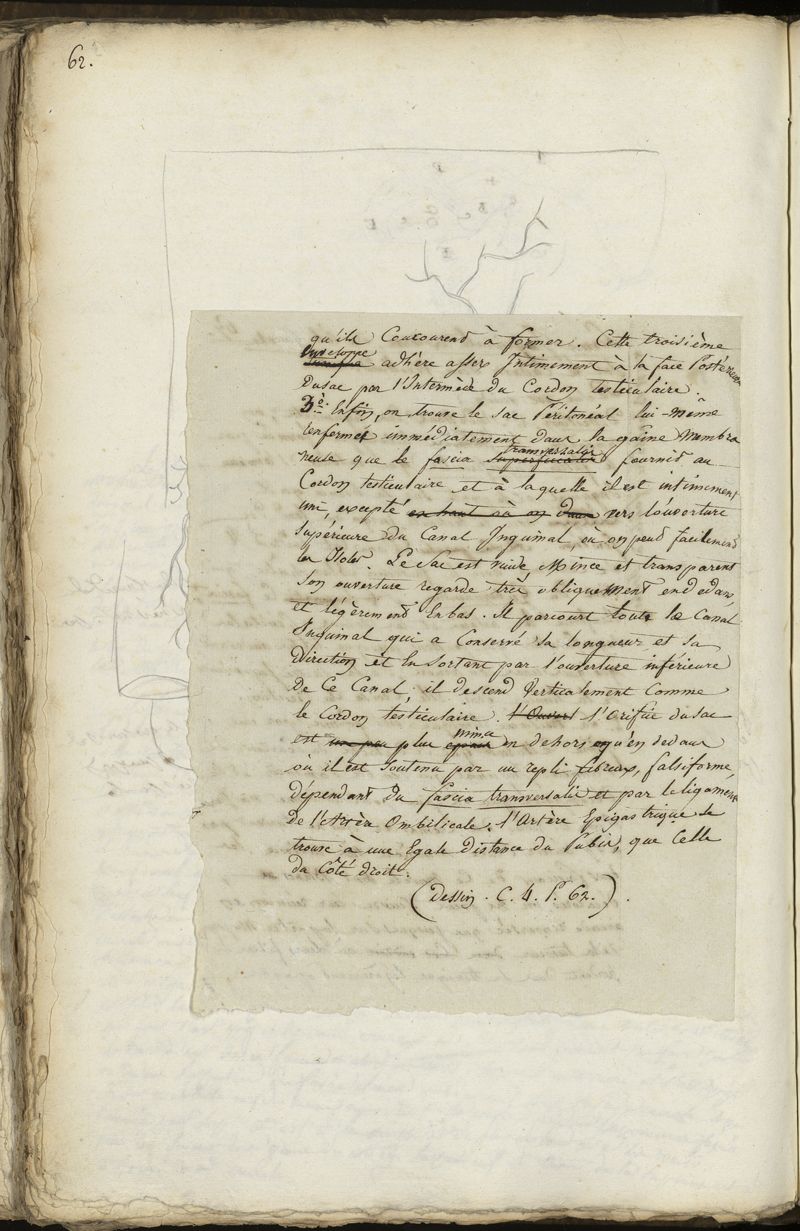 62.
qu'ils Concourend à former. Cette troisième
enveloppe adhère assez Intimement à la face Postérieure
Du sac par l'Intermède du Cordon testiculaire.
3e. Enfin, on trouve le sac Péritonéal lui-même
renfermé immédiatement dans la gaîne Membra
neuse que le fascia superficialis transversalis fournit au
Cordon testiculaire et à laquelle il est intimement
uni, excepté en haut où on vers l'ouverture
Supérieure du Canal Inguinal, où on peud facilement
les Isoler. Le Sac est vuide Mince et transparent
Son ouverture regarde très obliquement en dedans,
et légèrement En bas. Il parcourt toute le Canal
Inguinal qui a Conservé sa longueur et sa
Direction et En Sortant par l'ouverture inférieure
De Ce Canal, il descend Verticalement Comme
le Cordon testiculaire. l'Ouvert l'Orifice du sac
est un peu plus épais mince en dehors qu'en dedans
où il est Soutenu par un repli fibreux, falsiforme,
dépendant du fascia transversalis et par le ligament
De l'Artère Ombilicale. l'Artère Epigastrique se
trouve à une Egale Distance du Pubis, que Celle
du Côté droit.
(Dessin. C. 4. P. 62.).